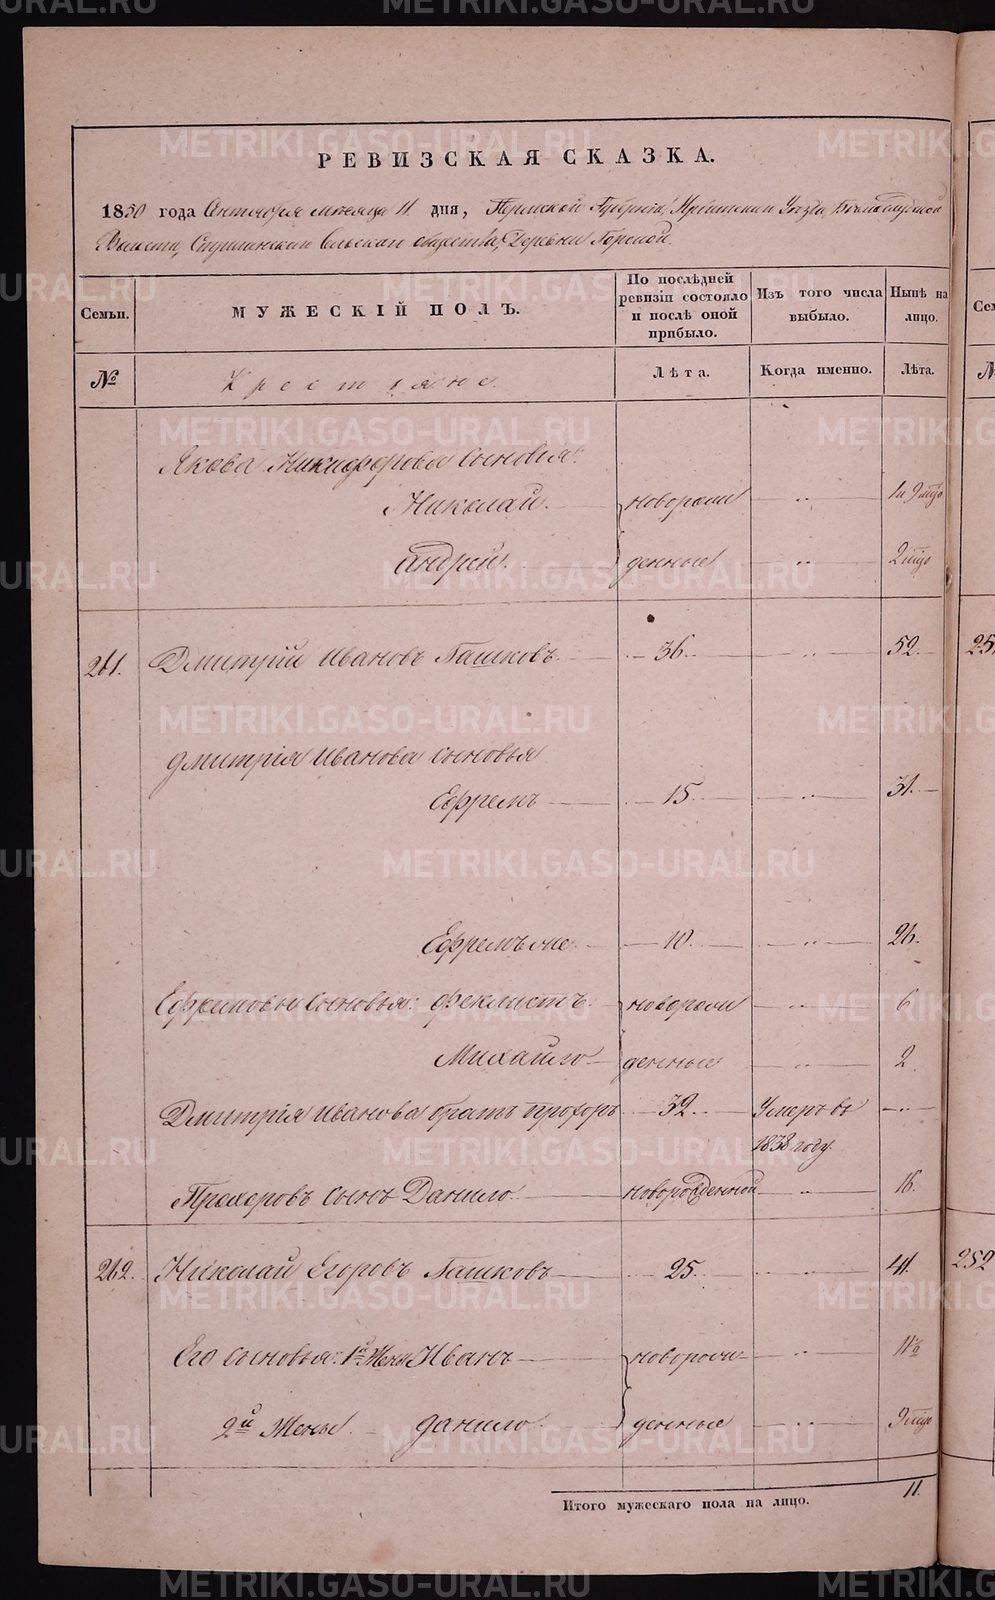 METRIKI.GASO-URAL.RU
РЕВИЗСКАЯ СКАЗКА.
1850 года Сентября месяца 11 дня, Пермской Губернии, Уезда,
Волости, Сельскаго общества, Деревни Горской.
Семьи.
МУЖЕСКІЙ ПОЛЪ.
По послѣдней ревизіи состояло и послѣ оной прибыло.
Изъ того числа выбыло.
Нынѣ на лицо.
№
Крестьяне.
Лѣта.
Когда именно.
Лѣта.
Якова Никифорова сыновья:
Николай. новорож 1 и 9 мцо
Андрей. денные 2 мцо
261. Дмитрій Ивановъ Гашковъ 36. 52.
Дмитрія Иванова сыновья
Ефремъ 15. 31.
Ефремъ же 10. 26.
Ефремовы сыновья: Феклистъ новорож 6
Михайло денные 2
Дмитрія Иванова братъ Прохоръ 32. Умеръ въ
1838 году.
Прохоровъ сынъ Данило новорожденной 16.
262. Николай Егоровъ Гашковъ 25. 41.
Его сыновья: 1й жены Иванъ новорож 11½
2й жены Данило денные 9 мцо
Итого мужескаго пола на лицо. 11.
252